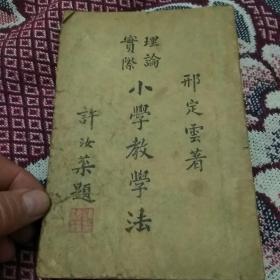 邢定雲著
理論
實際
小學教學法
許汝棻題